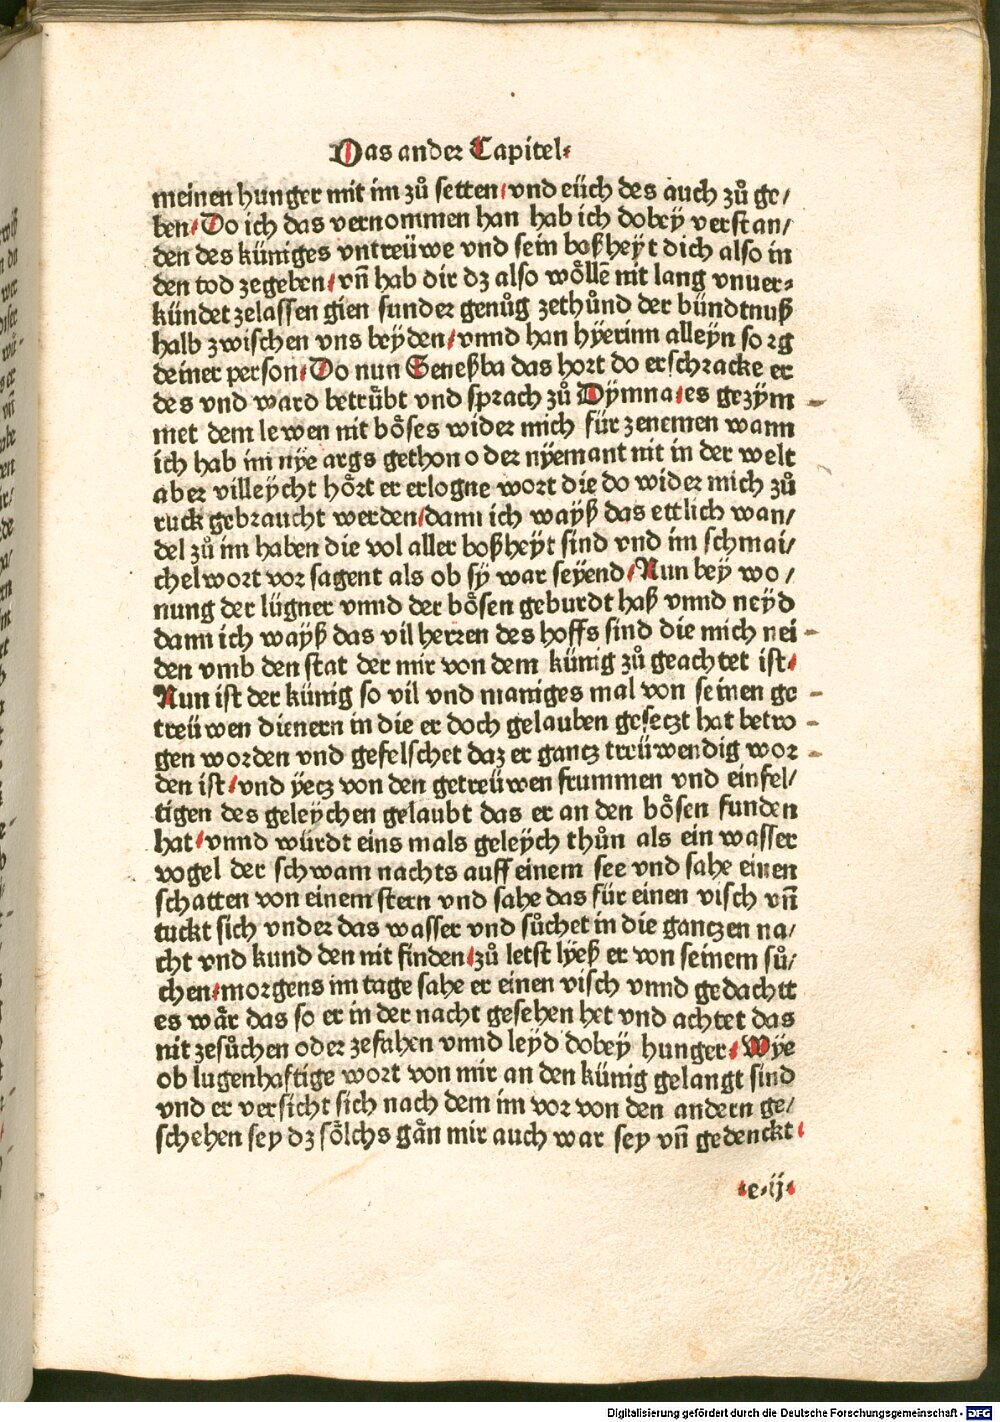 Das ander Capitel.
meinen hunger mit im zů setten/ vnd eüch des auch zů ge/
ben/ Do ich das vernommen han hab ich dobeÿ verstan/
den des küniges vntreüwe vnd sein boßheÿt dich also in
den tod zegeben/ vn̄ hab dir dz also woͤllē nit lang vnuer⸗
kündet zelassen gien sunder genůg zethůnd der bündtnuß
halb zwischen vns beÿden/ vnnd han hÿerinn alleÿn sorg
deiner person/ Do nun Seneßba das hort do erschracke er
des vnd ward betruͤbt vnd sprach zů Dÿmna/ es gezÿm
met dem lewen nit boͤses wider mich für zenemen wann
ich hab im nÿe args gethon oder nÿemant nit in der welt
aber villeÿcht hoͤrt er erlogne wort die do wider mich zů
ruck gebraucht werden/ dann ich waÿß das ettlich wan/
del zů im haben die vol aller boßheÿt sind vnd im schmai/
chelwort vor sagent als ob sÿ war seÿend/ Nun beÿ wo/
nung der lügner vnnd der boͤsen geburdt haß vnnd neÿd
dann ich waÿß das vil herren des hoffs sind die mich nei
den vmb den stat der mir von dem künig zů geachtet ist/
Nun ist der künig so vil vnd maniges mal von seinen ge
treüwen dienern in die er doch gelauben gesetzt hat betro
gen worden vnd gefelschet daz er gantz treüwendig wor
den ist/ vnd ÿetz von den getreüwen frummen vnd einfel/
tigen des geleÿchen gelaubt das er an den boͤsen funden
hat/ vnnd würdt eins mals geleÿch thůn als ein wasser
vogel der schwam nachts auff einem see vnd sahe einen
schatten von einem stern vnd sahe das für einen visch vn̄
tuckt sich vnder das wasser vnd sůchet in die gantzen na/
cht vnd kund den nit finden/ zů letst lÿeß er von seinem sů/
chen/ morgens im tage sahe er einen visch vnnd gedachtt
es waͤr das so er in der nacht gesehen het vnd achtet das
nit zesůchen oder zefahen vnnd leÿd dobeÿ hunger/ Wÿe
ob lugenhaftige wort von mir an den künig gelangt sind
vnd er versicht sich nach dem im vor von den andern ge/
schehen seÿ dz soͤlchs gaͤn mir auch war seÿ vn̄ gedenckt/
.e.ij.
Digitalisierung gefördert durch die Deutsche Forschungsgemeinschaft - DFG